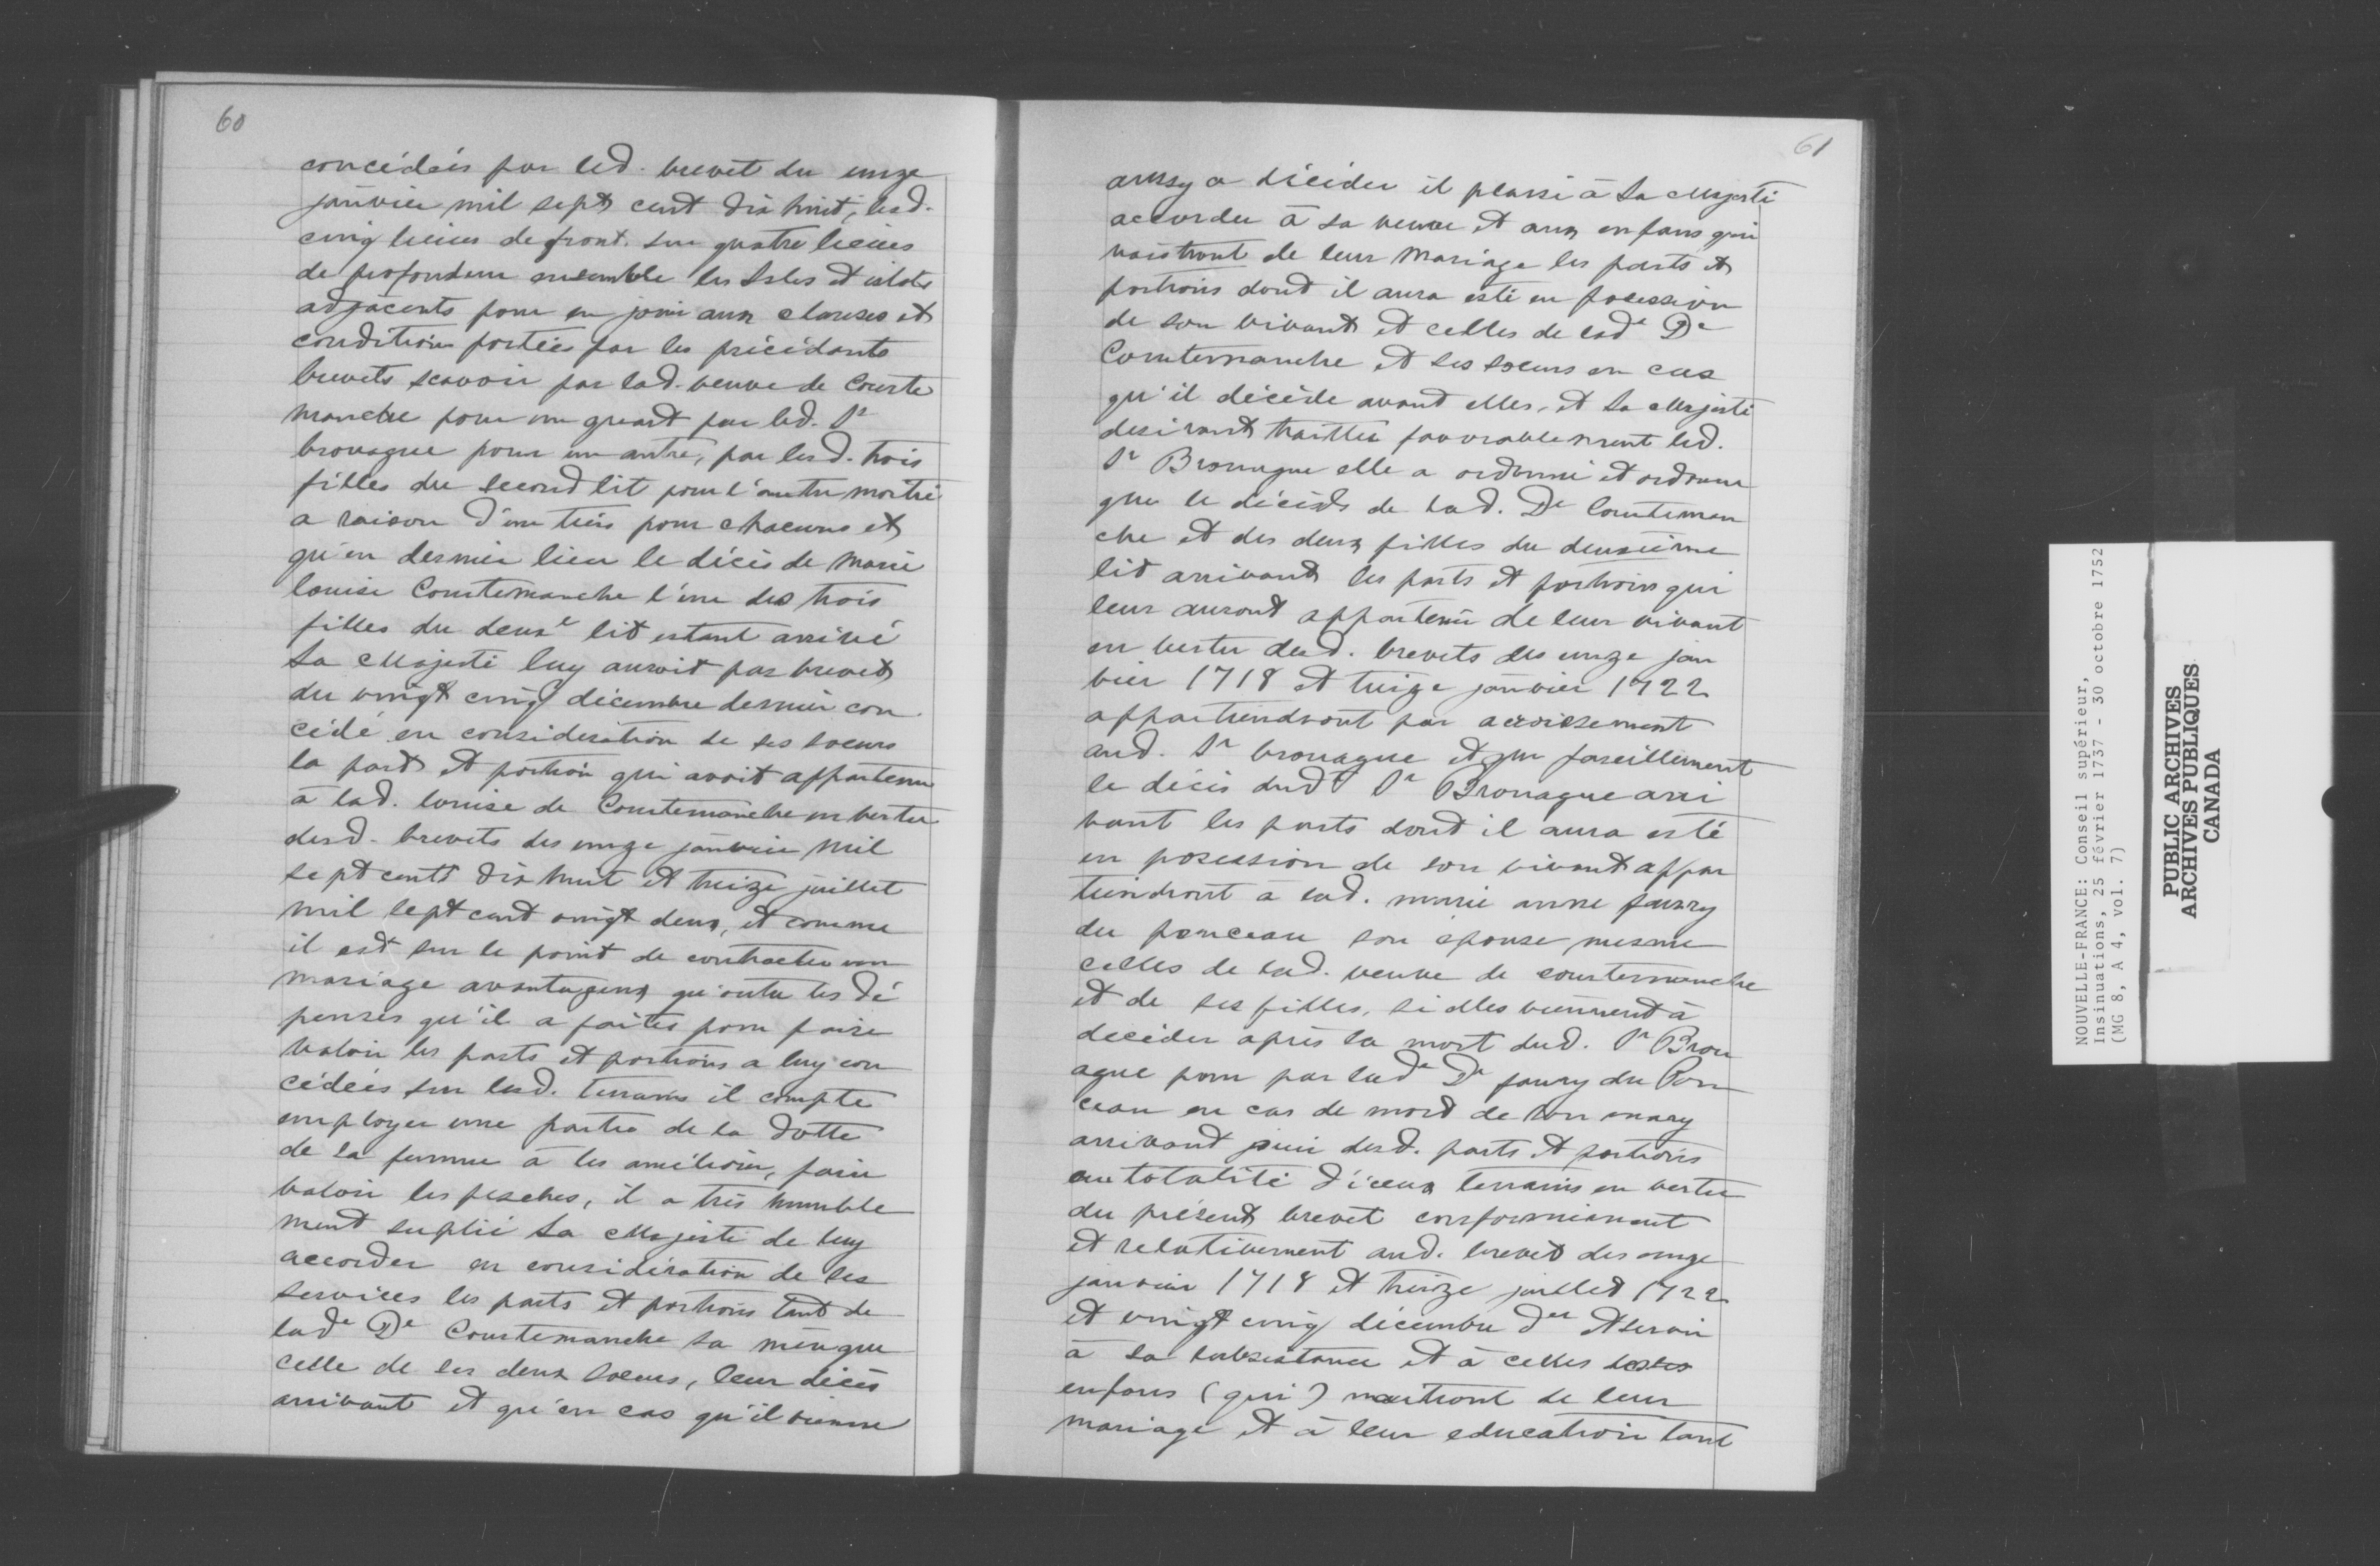 60
concédées par led. brevet du unze
janvier mil sept cent dix huit, lesd.
cinq lieues de front sur quatre lieues
de profondeur ensemble les Isles et islots
adjacents pour en jouir aux clauses et
conditions portées par les précédants
brevets scavoir par lad. veuve de Courte
manche pour un quart par led. Sr
brouague pour un autre, par lesd. trois
filles du second lit pour l'autre moitié
a raison d'un tiers pour chacune et
qu'en dernier lieu le décès de Marie
louise Courtemanche l'une des trois
filles du deuxe lit estant arrivé
Sa Majesté luy auroit par brevet
du vingt cinq décembre dernier con
cédé en considération de ses soeurs
la part et portion qui avoit appartenu
à lad. louise de Courtemanche en vertu
desd. brevets des unze janvier mil
sept cents dix huit et treize juillet
mil sept cent vingt deux, et comme
il est sur le point de contracter un
mariage avantageux qu'outre les dé
penses qu'il a faites pour faire
valoir les parts et portions a luy con
cédées sur lesd. terrains il compte
employer une partie de la dotte
de sa femme à les améliorer, faire
valoir les pesches, il a très humble
ment suplié Sa Majesté de luy
accorder en considération de ses
services les parts et portions tant de
lade De Courtemanche sa mère que
celle de ses deux soeurs, leur décès
arrivant et qu'en cas qu'il vienne
61
aussy a décéder il plaise à Sa Majesté
accorder à sa veuve et aux enfans qui
naistront de leur mariage les parts et
portions dont il aura esté en posession
de son vivant et celles de lade De
Courtemanche et ses soeurs en cas
qu'il décède avant elles, et Sa Majesté
desirant traitter favorablement led.
Sr Brouague elle a ordonné et ordonne
que le décéds de lad. De Courteman
che et des deux filles du deuxième
lit arrivant les parts et portions qui
leur auront appartenu de leur vivant
en vertu desd. brevets des unze jan
vier 1718 et treize janvier 1722
appartiendront par accroissement
aud. Sr brouague et que pareillement
le décès dud Sr Brouague arri
vant les parts dont il aura esté
en posession de son vivant appar
tiendront a lad. marie anne faury
du ponceau son épouse mesme
celles de lad. veuve de courtemanche
et de ses filles, si elles viennent à
decéder après la mort dud. Sr Brou
ague pour par lade De faury du Pon
ceau en cas de mort de son mary
arrivant jouir desd. parts et portions
ou totalité d'iceux terrains en vertu
du présent brevet conformément
et relativement aud. brevet des onze
janvier 1718 et treize juillet 1722
et vingt cinq décembre der et servir
à sa subsistance et à celles des
enfans (qui) naitront de leur
mariage et à leur education tant
NOUVELLE-FRANCE: Conseil supérieur,
Insinuations, 25 février 1737 - 30 octobre 1752
(MG 8, A 4, vol. 7)
PUBLIC ARCHIVES
ARCHIVES PUBLIQUES
CANADA